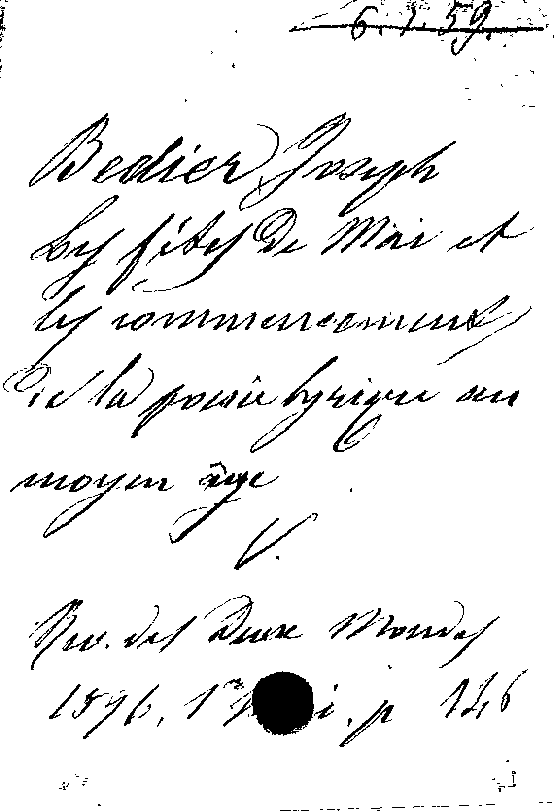 6.1.59.
Bedier, Joseph
Les fêtes de Mai et
les commencements
de la poesie lyrique au
moyen âge
V.
Rev. des Deux Mondes
1896, 1r M i. p 146